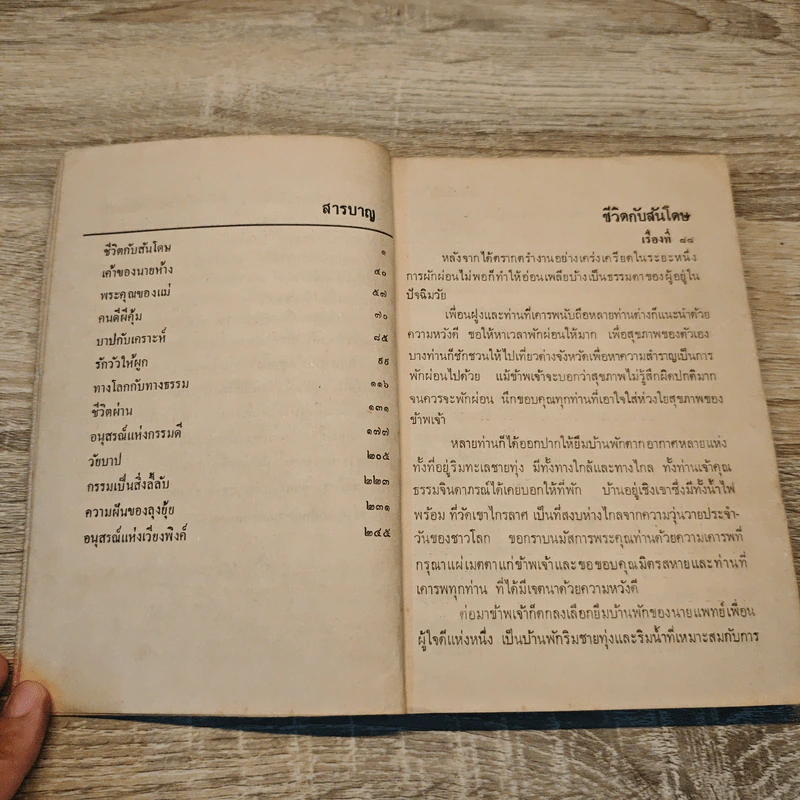 สารบาญ
ชีวิตกับสันโดษ ๑
เค้าของนายห้าง ๔๐
พระคุณของแม่ ๕๗
คนดีผีคุ้ม ๗๐
บาปกับเคราะห์ ๘๕
รักวัวให้ผูก ๙๙
ทางโลกกับทางธรรม ๑๑๖
ชีวิตผ่าน ๑๓๑
อนุสรณ์แห่งกรรมดี ๑๗๗
วัยบาป ๒๐๕
กรรมเป็นสิ่งลี้ลับ ๒๒๓
ความฝันของลุงยุ้ย ๒๓๑
อนุสรณ์แห่งเวียงพิงค์ ๒๔๕
ชีวิตกับสันโดษ
เรื่องที่ ๘๘
หลังจากได้ตรากตรำงานอย่างเคร่งเครียดในระยะหนึ่ง
การพักผ่อนไม่พอก็ทำให้อ่อนเพลียบ้างเป็นธรรมดาของผู้อยู่ใน
ปัจฉิมวัย
เพื่อนฝูงและท่านที่เคารพนับถือหลายท่านต่างก็แนะนำด้วย
ความหวังดี ขอให้หาเวลาพักผ่อนให้มาก เพื่อสุขภาพของตัวเอง
บางท่านก็ชักชวนให้ไปเที่ยวต่างจังหวัดเพื่อหาความสำราญเป็นการ
พักผ่อนไปด้วย แม้ข้าพเจ้าจะบอกว่าสุขภาพไม่รู้สึกผิดปกติมาก
จนควรจะพักผ่อน นึกขอบคุณทุกท่านที่เอาใจใส่ห่วงใยสุขภาพของ
ข้าพเจ้า
หลายท่านก็ได้ออกปากให้ยืมบ้านพักตากอากาศหลายแห่ง
ทั้งที่อยู่ริมทะเลชายทุ่ง มีทั้งทางใกล้และทางไกล ทั้งท่านเจ้าคุณ
ธรรมจินดาภรณ์ได้เคยบอกให้ที่พัก บ้านอยู่เชิงเขาซึ่งมีทั้งน้ำไฟ
พร้อม ที่วัดเขาไกรลาศ เป็นที่สงบห่างไกลจากความวุ่นวายประจำ-
วันของชาวโลก ขอกราบนมัสการพระคุณท่านด้วยความเคารพที่
กรุณาแผ่เมตตาแก่ข้าพเจ้าและขอขอบคุณมิตรสหายและท่านที่
เคารพทุกท่าน ที่ได้มีเจตนาด้วยความหวังดี
ต่อมาข้าพเจ้าก็ตกลงเลือกยืมบ้านพักของนายแพทย์เพื่อน
ผู้ใจดีแห่งหนึ่ง เป็นบ้านพักริมชายทุ่งและริมน้ำที่เหมาะสมกับการ